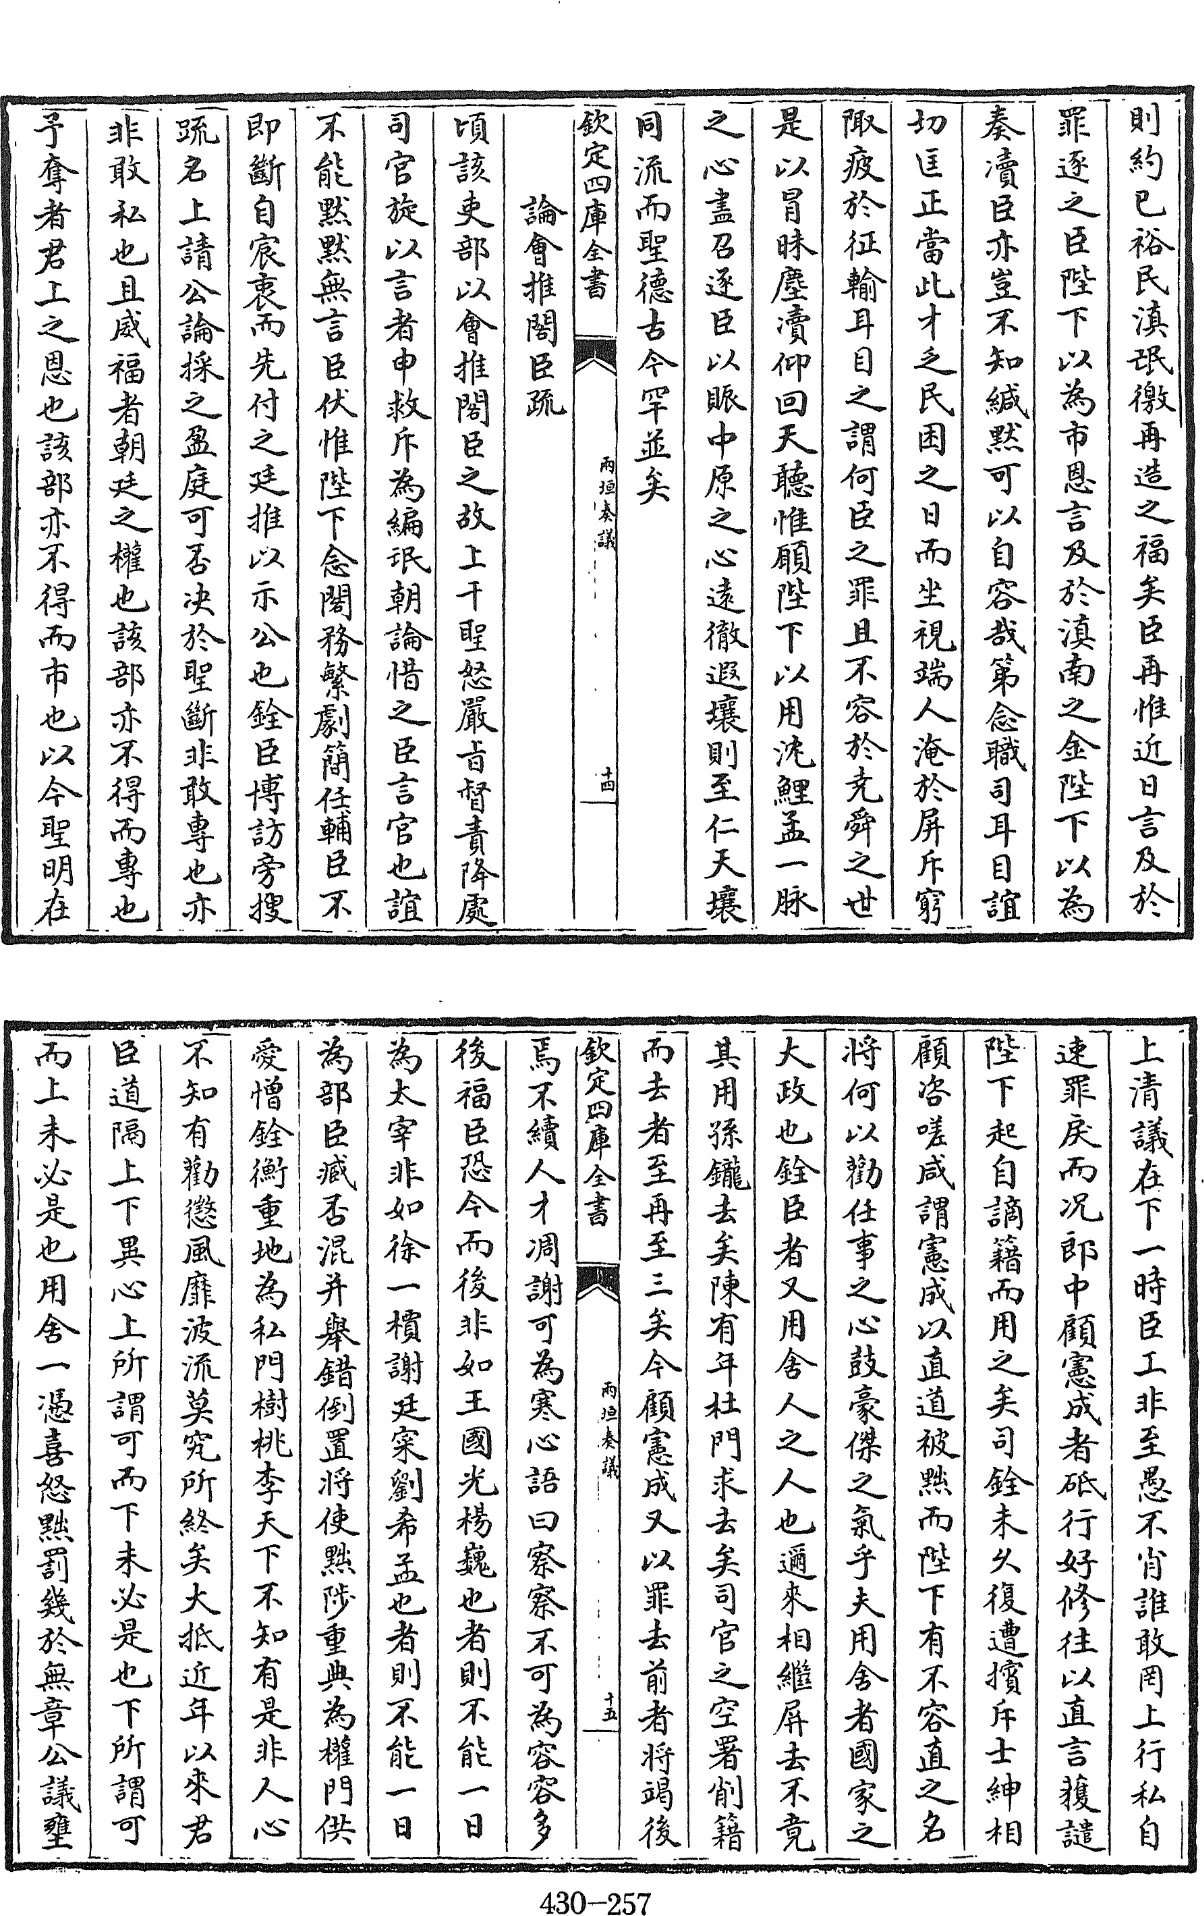 則約已裕民滇氓徼再造之福矣臣再惟近日言及於
罪逐之臣陛下以為市恩言及於滇南之金陛下以為
奏凟臣亦豈不知緘默可以自容哉第念職司耳目誼
切匡正當此才乏民困之日而坐視端人淹於屏斥窮
陬疲於征輸耳目之謂何臣之罪且不容於堯舜之世
是以冒昧塵凟仰回天聽惟願陛下以用沈鯉孟一脉
之心盡召逐臣以賑中原之心遠徹遐壤則至仁天壤
同流而聖德古今罕並矣
欽定四庫全書
兩垣奏議
十四
論會推閣臣疏
頃該吏部以會推閣臣之故上干聖怒嚴旨督責降處
司官旋以言者申救斥為編氓朝論惜之臣言官也誼
不能黙黙無言臣伏惟陛下念閣務繁劇簡任輔臣不
即斷自宸衷而先付之廷推以示公也銓臣博訪旁搜
疏名上請公論採之盈庭可否决於聖斷非敢專也亦
非敢私也且威福者朝廷之權也該部亦不得而專也
予奪者君上之恩也該部亦不得而市也以今聖明在
上清議在下一時臣工非至愚不肖誰敢罔上行私自
速罪戾而况郎中顧憲成者砥行好修往以直言獲譴
陛下起自謫籍而用之矣司銓未久復遭擯斥士紳相
顧咨嗟咸謂憲成以直道被黜而陛下有不容直之名
將何以勸任事之心鼓豪傑之氣乎夫用舍者國家之
大政也銓臣者又用舍人之人也邇來相繼屏去不竟
其用孫鑨去矣陳有年杜門求去矣司官之空署削籍
而去者至再至三矣今顧憲成又以罪去前者將竭後
欽定四庫全書
兩垣奏議
十五
焉不續人才凋謝可為寒心語曰察察不可為容容多
後福臣恐今而後非如王國光楊巍也者則不能一日
為太宰非如徐一檟謝廷寀劉希孟也者則不能一日
為部臣臧否混并舉錯倒置將使黜陟重典為權門供
愛憎銓衡重地為私門樹桃李天下不知有是非人心
不知有勸懲風靡波流莫究所終矣大抵近年以來君
臣道隔上下異心上所謂可而下未必是也下所謂可
而上未必是也用舍一憑喜怒黜罰幾於無章公議壅
430-257